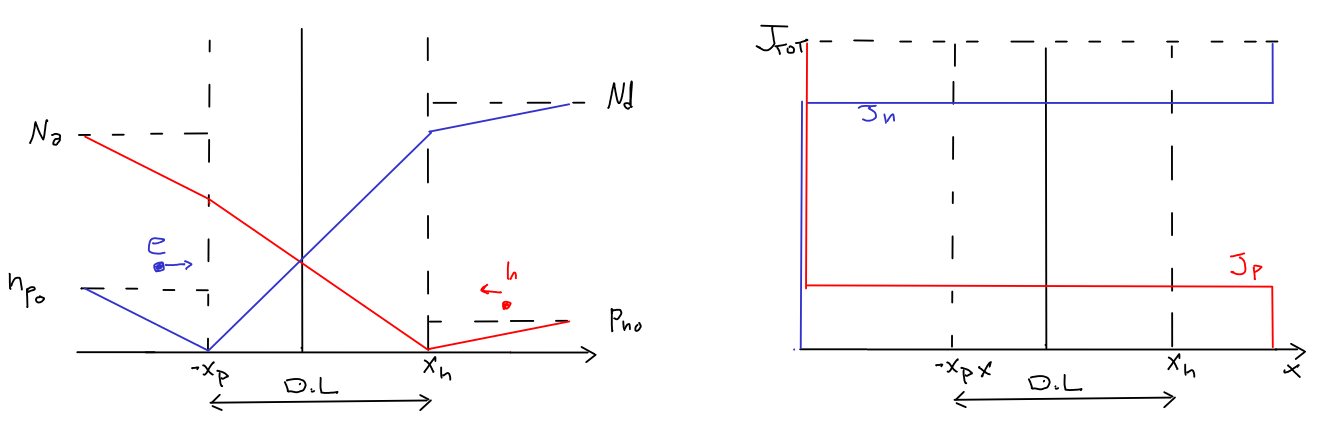 Nd
Na
e
h
npo
pno
-xp
xn
D.L
JTOT
Jn
Jp
-xp x
xn
x
D.L